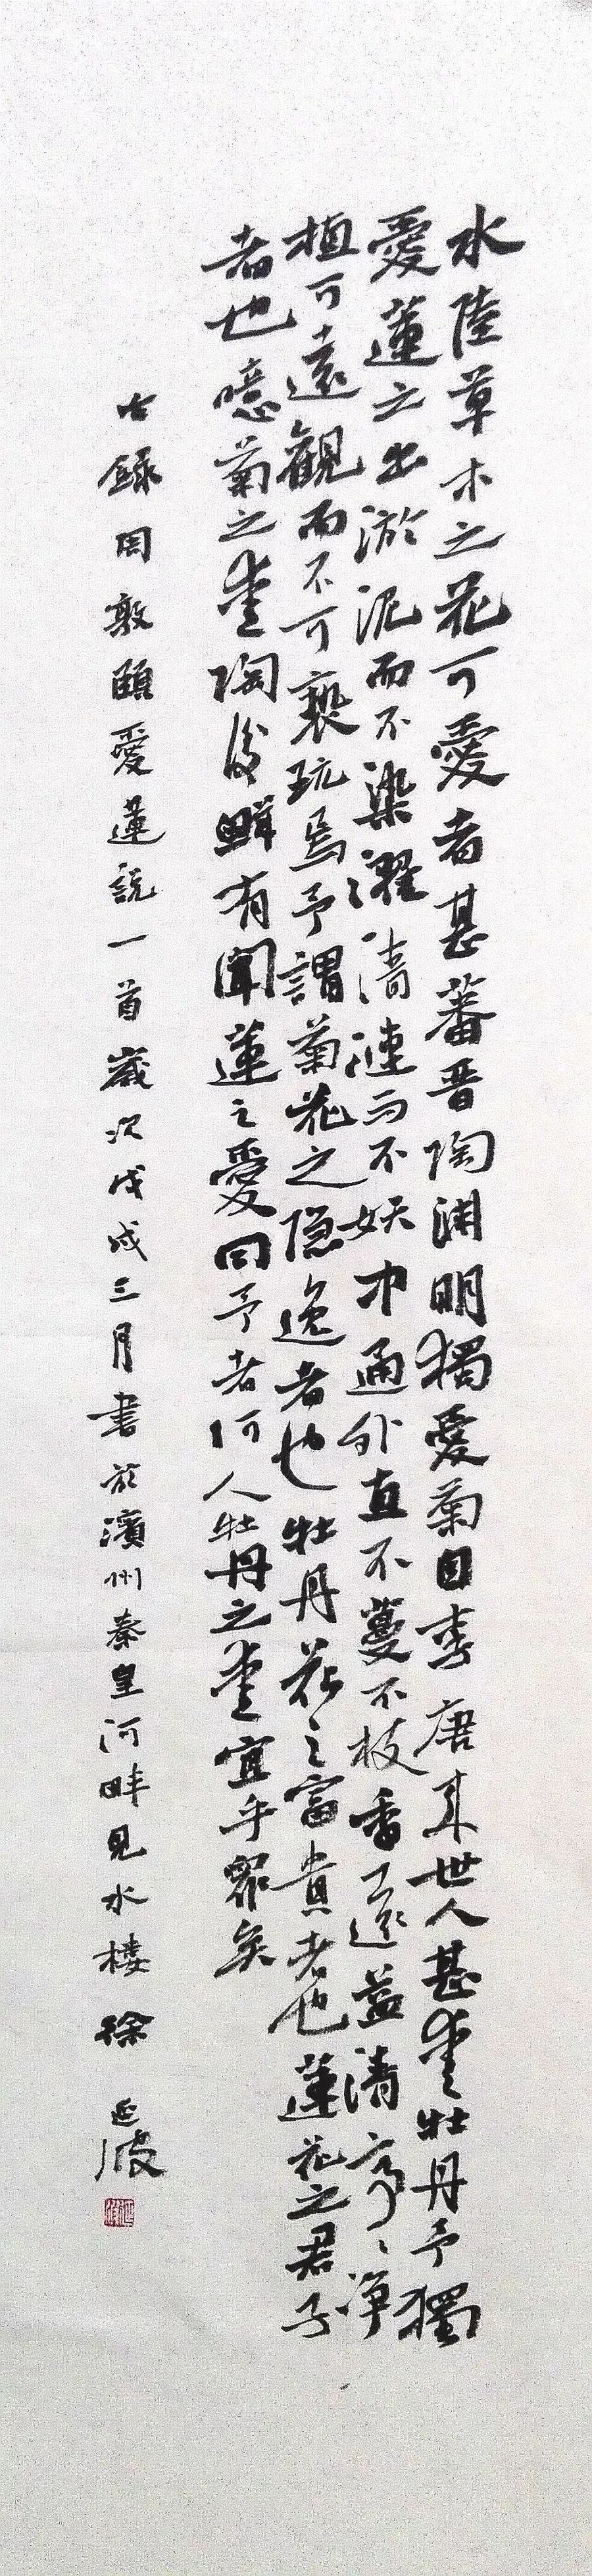 水陸草木之花可愛者甚蕃晋陶淵明獨愛菊自李唐来世人甚愛牡丹予獨
愛蓮之出淤泥而不染濯清漣而不妖中通外直不蔓不枝香遠益清亭亭淨
植可遠觀而不可褻玩焉予謂菊花之隱逸者也牡丹花之富貴者也蓮花之君子
者也噫菊之愛陶後鮮有聞蓮之愛同予者何人牡丹之愛宜乎眾矣
右錄周敦頤愛蓮説一首歲次戊戌三月書於濱州秦皇河畔見水樓 徐延波